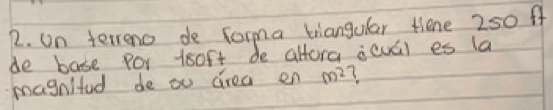 2. Un terreno de forma triangular tiene 250 ft
de base por 180ft de altora ¿cuál es la
magnitud de su área en m²?